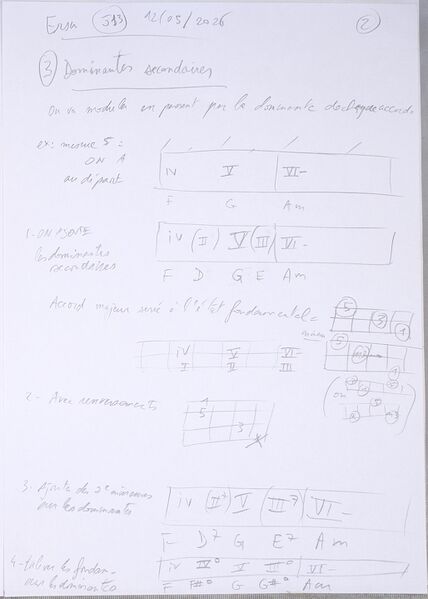 Ersa J13 12/05/2026 2
3 Dominantes secondaires
On va moduler en passant par la dominante de chaque accord
ex: mesure 5 =
ON A
au départ
IV V VI-
F G Am
1- ON AJOUTE
les dominantes
secondaires
iv (II) V (III) VI-
F D G E Am
Accord majeur serré à l'état fondamental =
5 3 1
mineur
iv V VI-
I II III
ou
2- Avec renversements
1
5
3
3- Ajoute des 7e mineures
sur les dominantes
iv (II7) V (III7) VI-
F D7 G E7 Am
4- Enlever les fondam-
sur les dominantes
iv IV° V VI-
F F#° G G#° Am